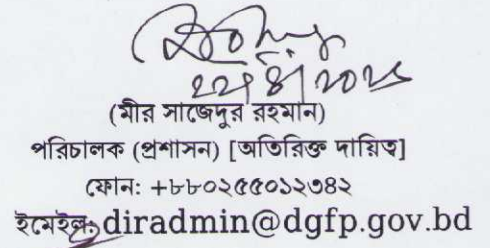 (মীর সাজেদুর রহমান)
পরিচালক (প্রশাসন) [অতিরিক্ত দায়িত্ব]
ফোন: +৮৮০২৫৫০১২৩৪২
ইমেইল: diradmin@dgfp.gov.bd